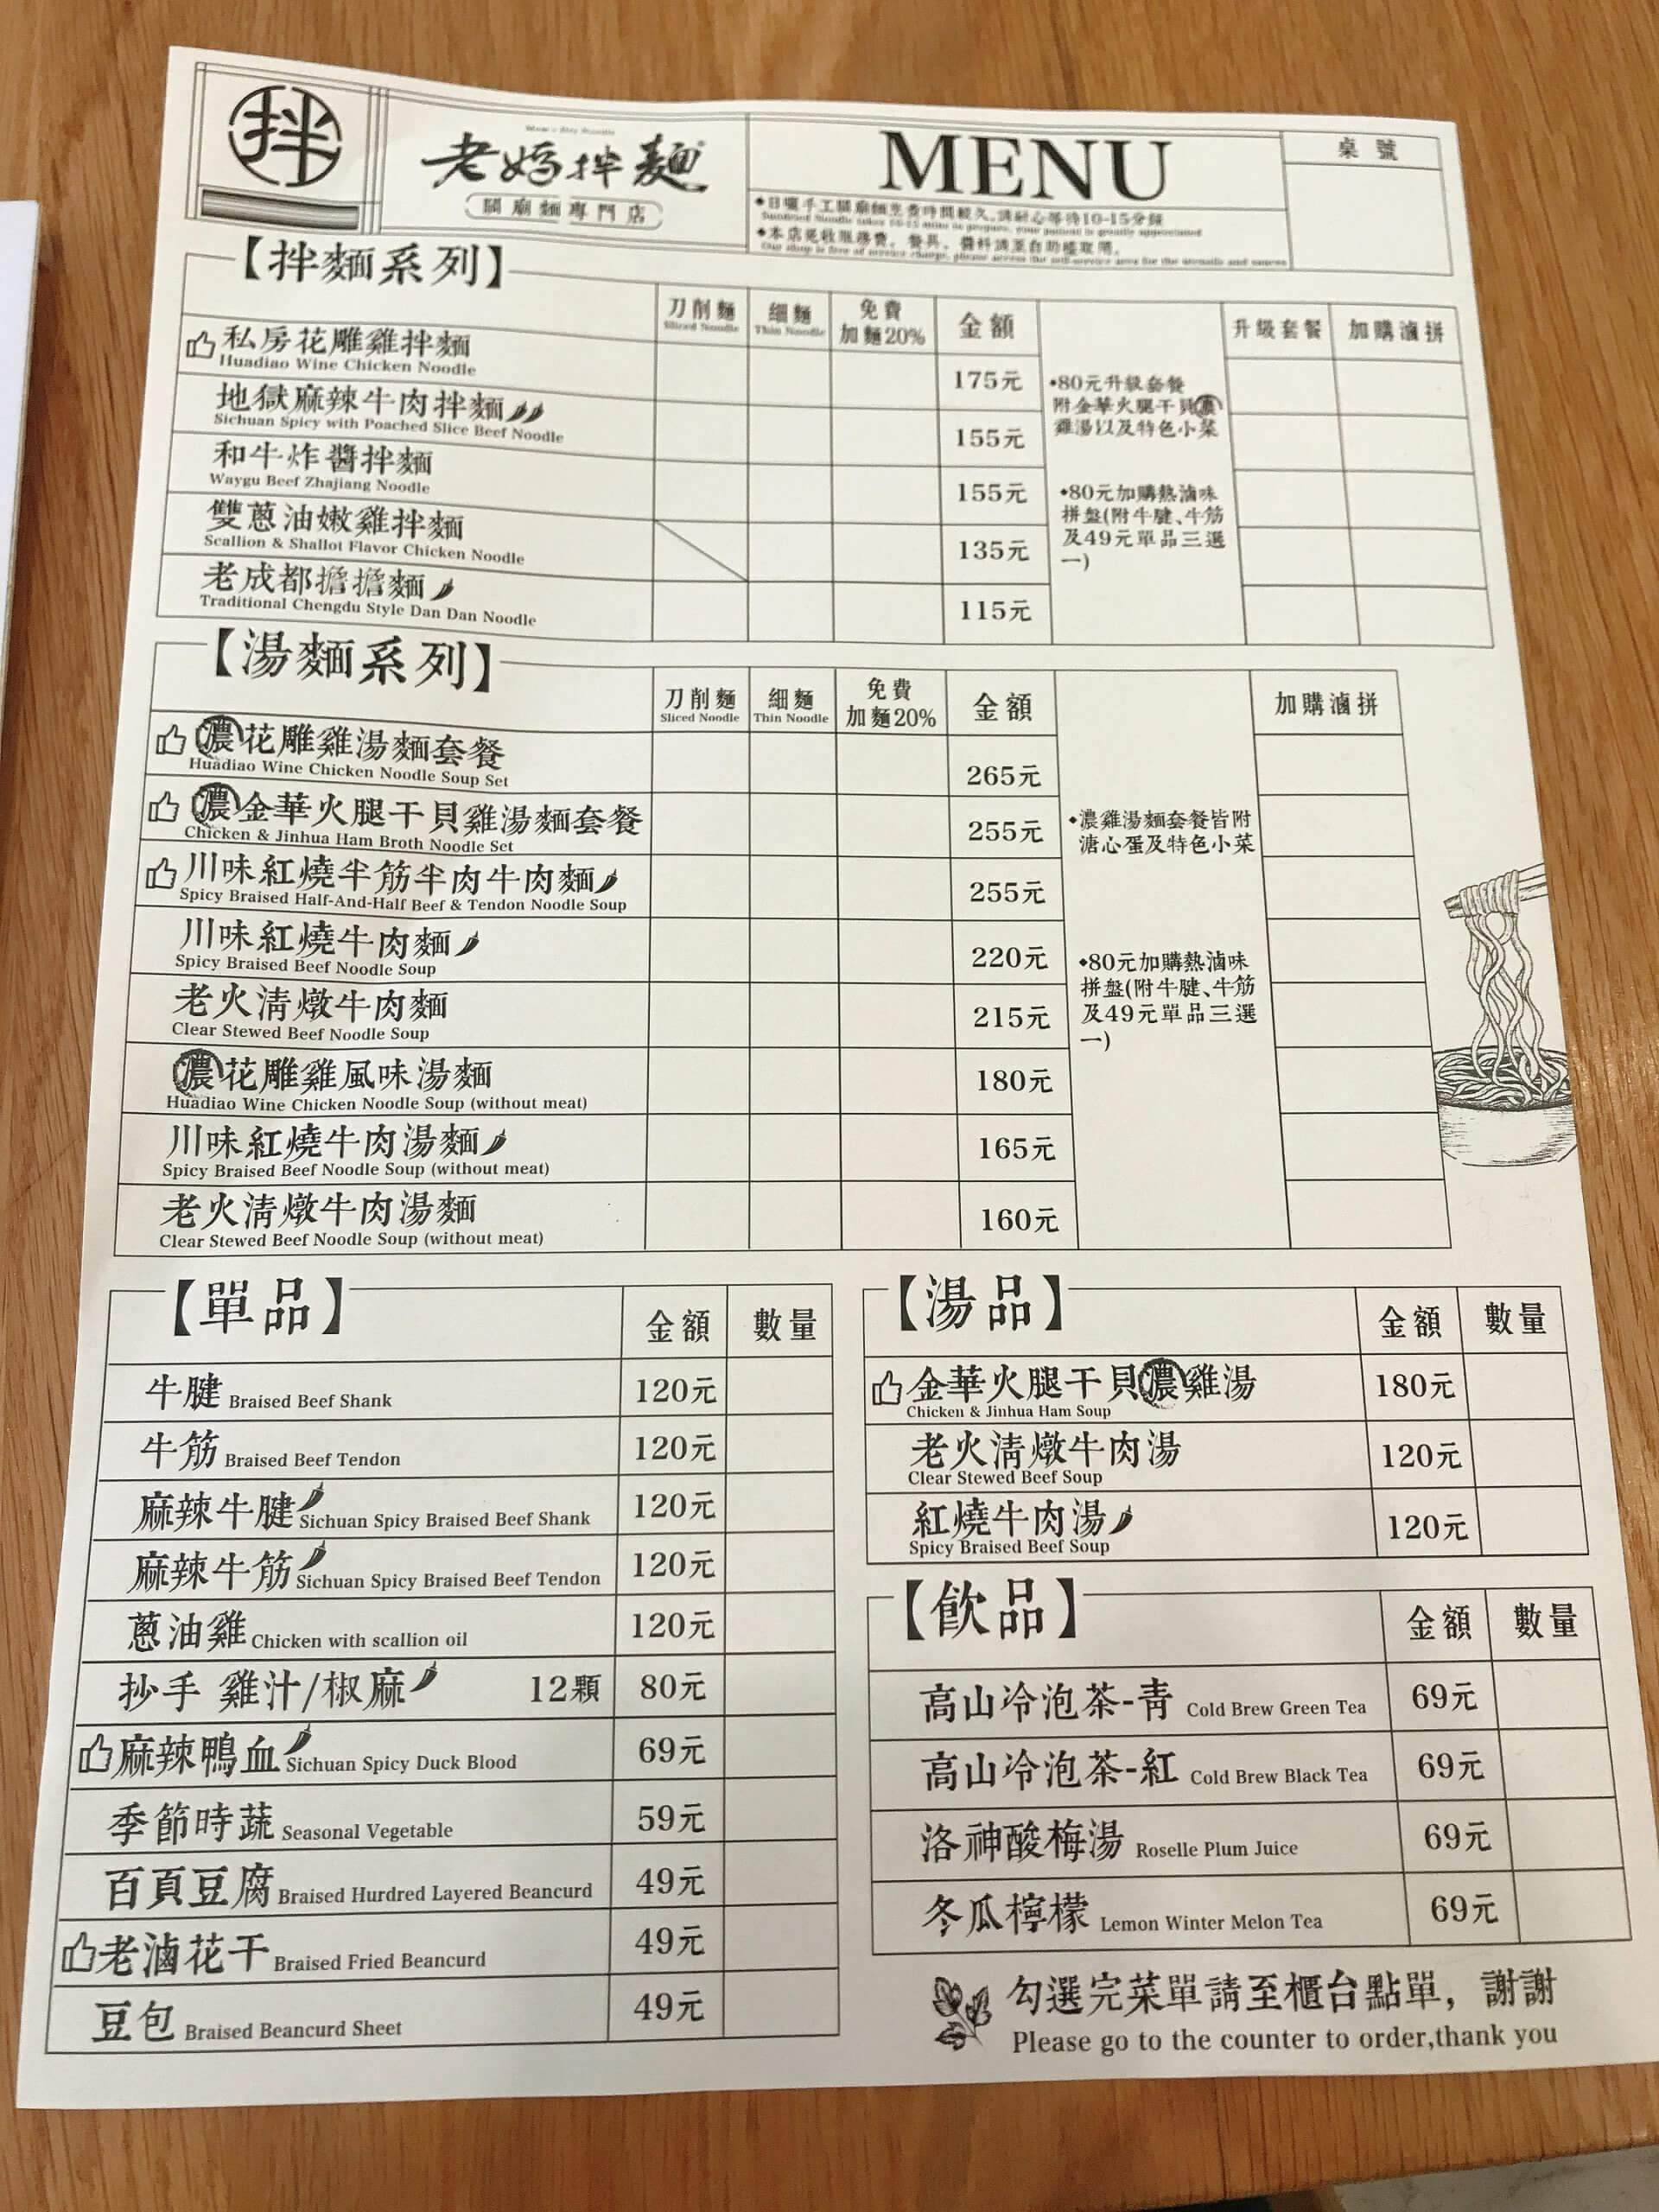 拌
Mom's Dry Noodle
老媽拌麵
關廟麵專門店
MENU
桌號
◆日曬手工關廟麵烹煮時間較久,請耐心等待10-15分鐘
Sundried Noodle takes 10-15 mins to prepare, your patient is greatly appreciated
◆本店免收服務費,餐具、醬料請至自助檯取用。
Our shop is free of service charge, please access the self-service area for the utensils and sauces
【拌麵系列】
刀削麵 細麵 免費 金額 升級套餐 加購滷拼
Sliced Noodle Thin Noodle 加麵20%
私房花雕雞拌麵 175元
Huadiao Wine Chicken Noodle
地獄麻辣牛肉拌麵 155元
Sichuan Spicy with Poached Slice Beef Noodle
和牛炸醬拌麵 155元
Waygu Beef Zhajiang Noodle
雙蔥油嫩雞拌麵 135元
Scallion & Shallot Flavor Chicken Noodle
老成都擔擔麵 115元
Traditional Chengdu Style Dan Dan Noodle
•80元升級套餐
附金華火腿干貝濃
雞湯以及特色小菜
•80元加購熱滷味
拼盤(附牛腱、牛筋
及49元單品三選
一)
【湯麵系列】
刀削麵 細麵 免費 金額 加購滷拼
Sliced Noodle Thin Noodle 加麵20%
濃花雕雞湯麵套餐 265元
Huadiao Wine Chicken Noodle Soup Set
濃金華火腿干貝雞湯麵套餐 255元
Chicken & Jinhua Ham Broth Noodle Set
川味紅燒半筋半肉牛肉麵 255元
Spicy Braised Half-And-Half Beef & Tendon Noodle Soup
川味紅燒牛肉麵 220元
Spicy Braised Beef Noodle Soup
老火清燉牛肉麵 215元
Clear Stewed Beef Noodle Soup
濃花雕雞風味湯麵 180元
Huadiao Wine Chicken Noodle Soup (without meat)
川味紅燒牛肉湯麵 165元
Spicy Braised Beef Noodle Soup (without meat)
老火清燉牛肉湯麵 160元
Clear Stewed Beef Noodle Soup (without meat)
•濃雞湯麵套餐皆附
溏心蛋及特色小菜
•80元加購熱滷味
拼盤(附牛腱、牛筋
及49元單品三選
一)
【單品】 金額 數量
牛腱 Braised Beef Shank 120元
牛筋 Braised Beef Tendon 120元
麻辣牛腱 Sichuan Spicy Braised Beef Shank 120元
麻辣牛筋 Sichuan Spicy Braised Beef Tendon 120元
蔥油雞 Chicken with scallion oil 120元
抄手 雞汁/椒麻 12顆 80元
麻辣鴨血 Sichuan Spicy Duck Blood 69元
季節時蔬 Seasonal Vegetable 59元
百頁豆腐 Braised Hurdred Layered Beancurd 49元
老滷花干 Braised Fried Beancurd 49元
豆包 Braised Beancurd Sheet 49元
【湯品】 金額 數量
金華火腿干貝濃雞湯 180元
Chicken & Jinhua Ham Soup
老火清燉牛肉湯 120元
Clear Stewed Beef Soup
紅燒牛肉湯 120元
Spicy Braised Beef Soup
【飲品】 金額 數量
高山冷泡茶-青 Cold Brew Green Tea 69元
高山冷泡茶-紅 Cold Brew Black Tea 69元
洛神酸梅湯 Roselle Plum Juice 69元
冬瓜檸檬 Lemon Winter Melon Tea 69元
勾選完菜單請至櫃台點單，謝謝
Please go to the counter to order,thank you